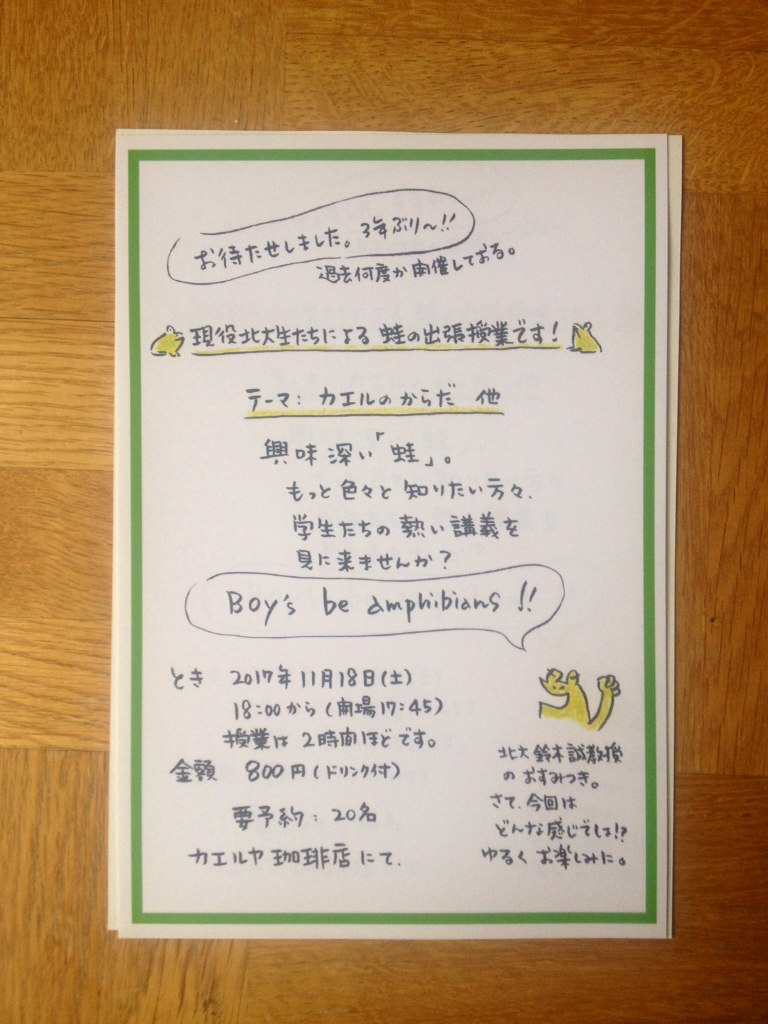 お待たせしました。3年ぶり〜!!
過去何度か開催しておる。
現役北大生たちによる 蛙の出張授業です!
テーマ: カエルのからだ 他
興味深い「蛙」。
もっと色々と知りたい方々、
学生たちの熱い講義を
見に来ませんか?
Boy's be amphibians!!
とき 2017年11月18日(土)
18:00から(開場17:45)
授業は2時間ほどです。
金額 800円(ドリンク付)
要予約: 20名
カエルヤ珈琲店にて、
北大 鈴木誠教授
のおすみつき。
さて、今回は
どんな感じでしょ!?
ゆるくお楽しみに。